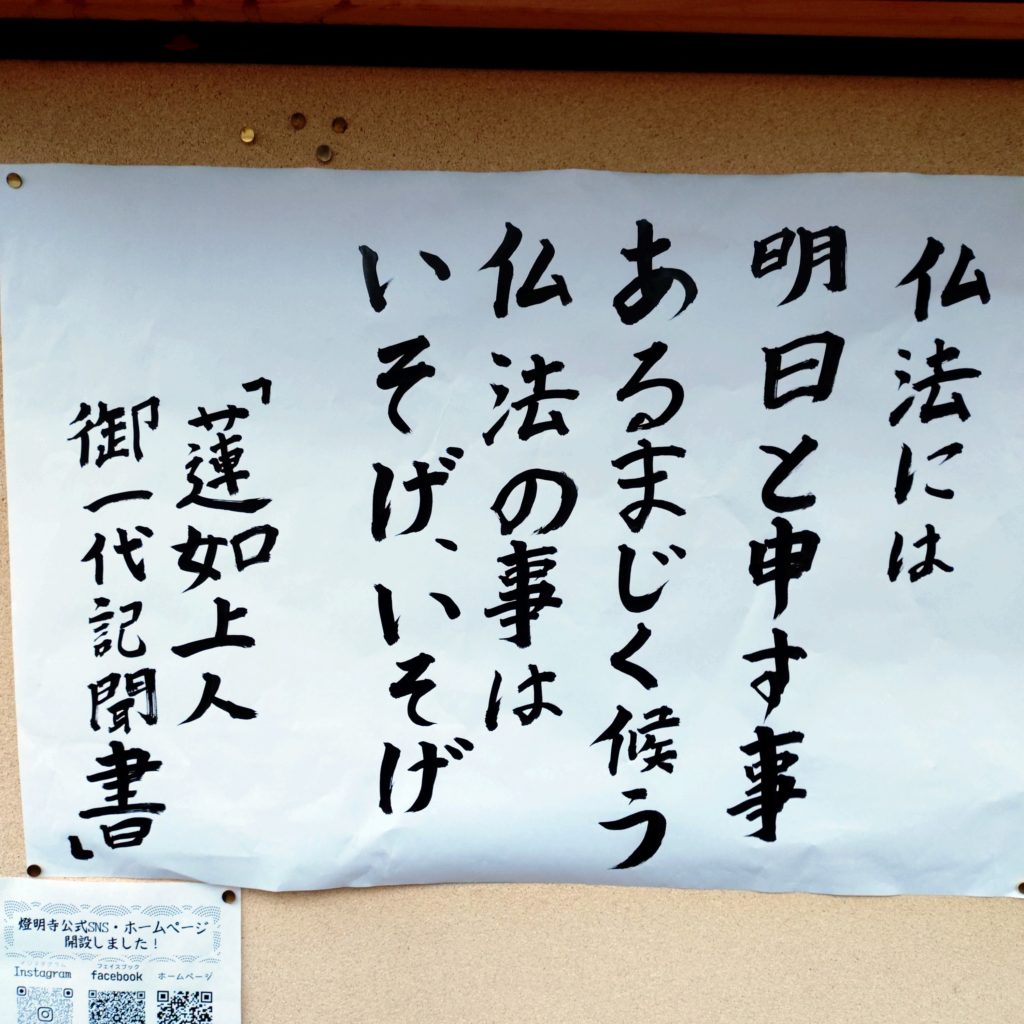 仏法には
明日と申す事
あるまじく候う
仏法の事は
いそげ、いそげ
「蓮如上人
御一代記聞書」
燈明寺公式SNS・ホームページ
開設しました！
インスタグラム
Instagram
フェイスブック
facebook
ホームページ